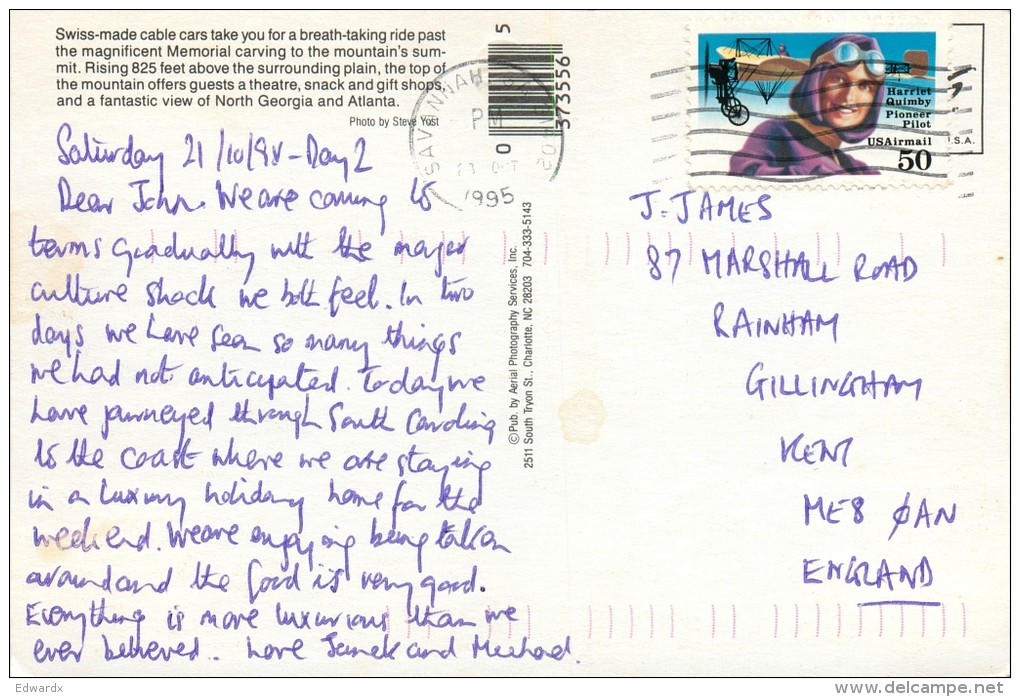 Swiss-made cable cars take you for a breath-taking ride past
the magnificent Memorial carving to the mountain's sum-
mit. Rising 825 feet above the surrounding plain, the top of
the mountain offers guests a theatre, snack and gift shops,
and a fantastic view of North Georgia and Atlanta.
Photo by Steve Yost
Saturday 21/10/9 - Day 2
Dear John. We are coming to
terms gradually with the major
culture shock we both feel. In two
days we have seen so many things
we had not anticipated. Today we
have journeyed through South Carolina
to the coast where we are staying
in a luxury holiday home for the
weekend. We are enjoying being taken
around and the food is very good.
Everything is more luxurious than we
ever believed. Love and Michael.
©Pub. by Aerial Photography Services, Inc.
2511 South Tryon St., Charlotte, NC 28203 704-333-5143
5
0
373556
SAVANNAH
PM
23 OCT
1995
Harriet
Quimby
Pioneer
Pilot
USAirmail
50
U.S.A.
J. JAMES
87 MARSHALL ROAD
RAINHAM
GILLINGHAM
KENT
ME8 0AN
ENGLAND
Edwardx
www.delcampe.net